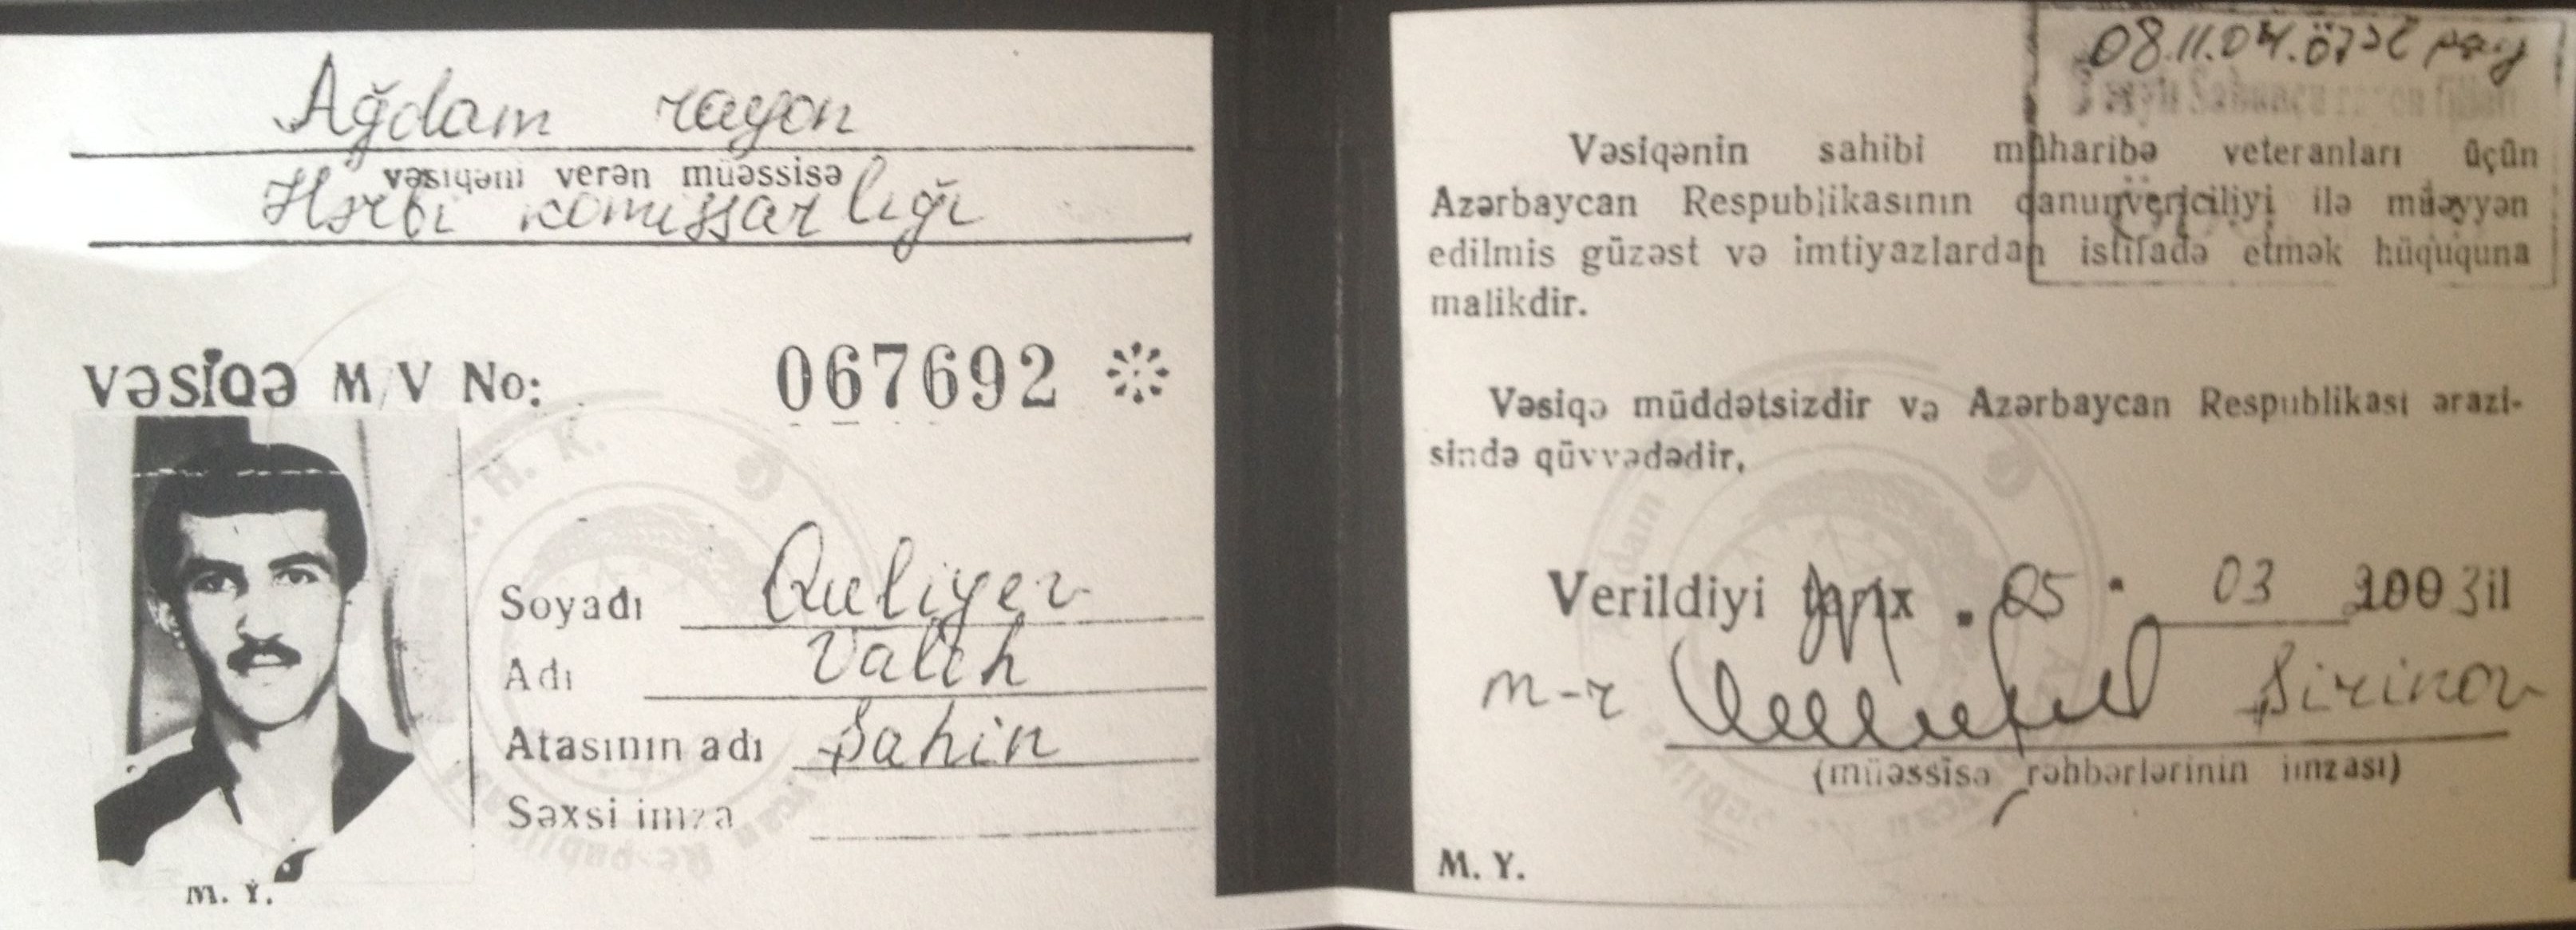 Ağdam rayon
vəsiqəni verən müəssisə
Hərbi komissarlığı
VƏSİQƏ M/V No: 067692
H. K.
Soyadı Quliyev
Adı Valeh
Atasının adı Şahin
Səxsi imza
M. Y.
08.11.04. özəl pay
Vəsiqənin sahibi müharibə veteranları üçün
Azərbaycan Respublikasının qanunvericiliyi ilə müəyyən
edilmis güzəst və imtiyazlardan istifadə etmək hüququna
malikdir.
Vəsiqə müddətsizdir və Azərbaycan Respublikası ərazi-
sində qüvvədədir.
Verildiyi tarix . 05 . 03 2003 il
m-r Şirinov
(müəssisə rəhbərlərinin imzası)
M. Y.